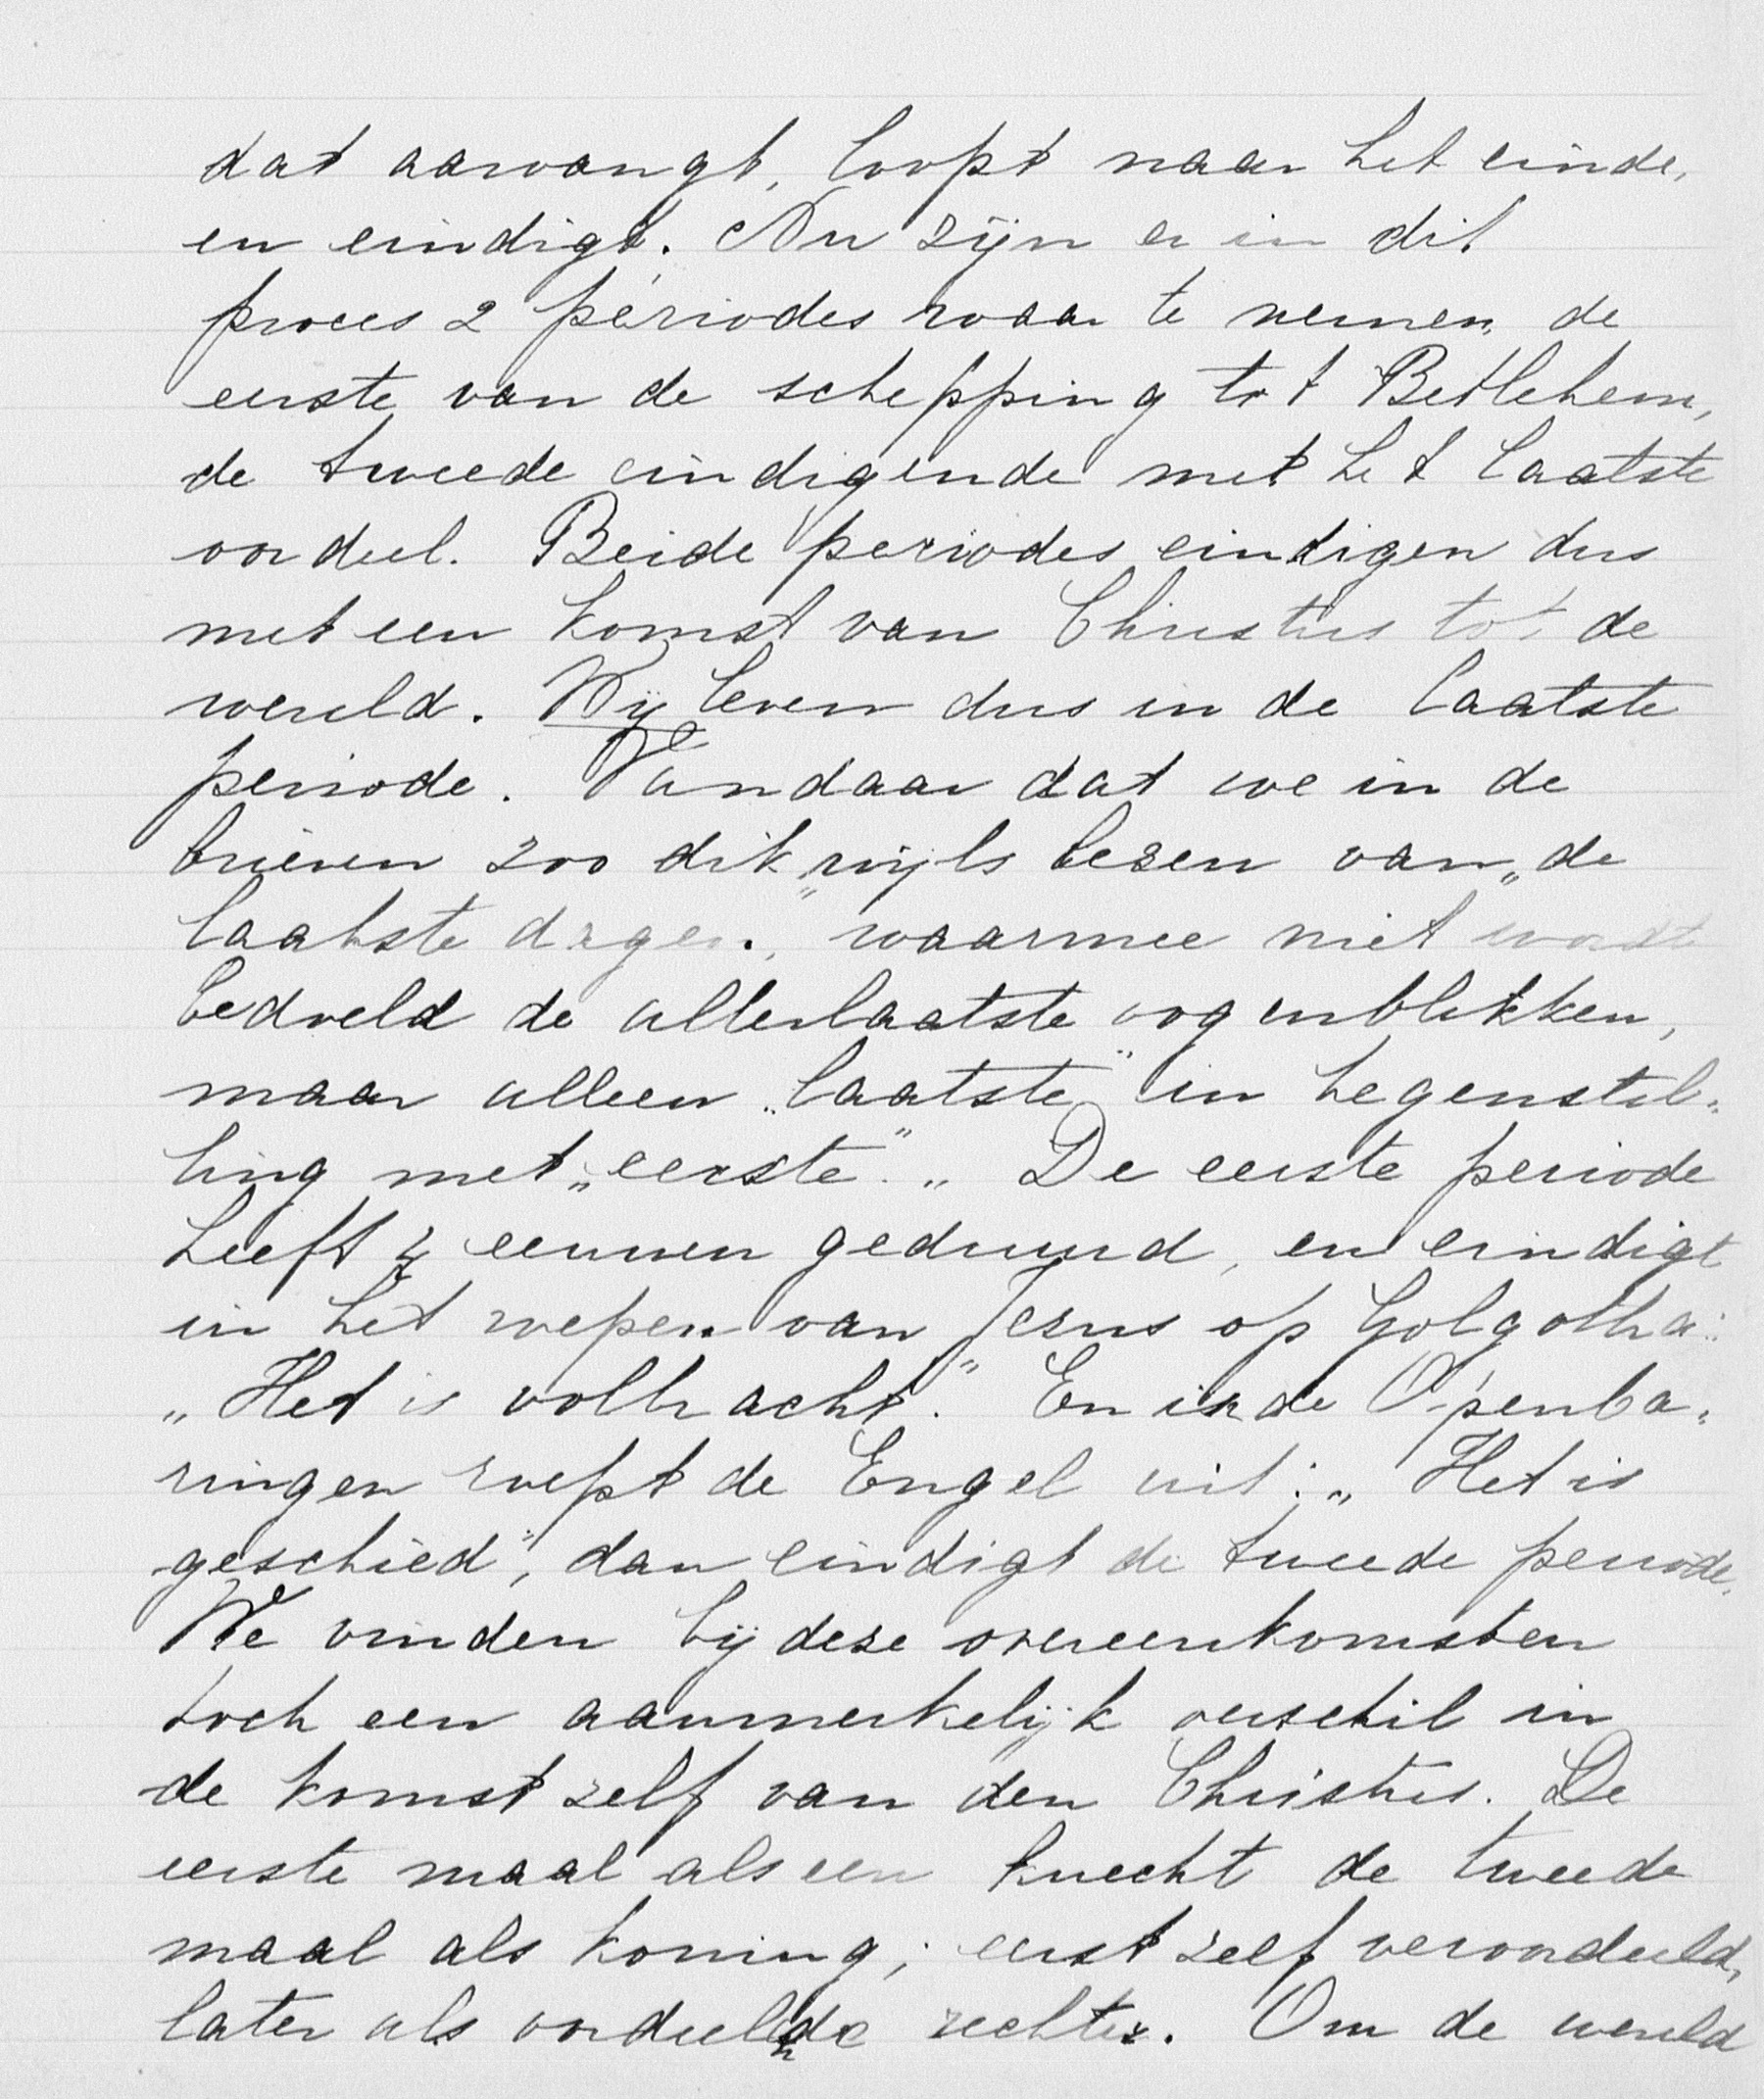 dat aanvangt, loopt naar het einde,
en eindigt. Nu zijn er in dit
proces 2 periodes waar te nemen, de
eerste van de schepping tot Bethlehem,
de tweede eindigende met het laatste
oordeel. Beide periodes eindigen dus
met een komst van Christus tot de
wereld. Wij leven dus in de laatste
periode. Vandaar dat we in de
brieven zoo dikwijls lezen van „de
laatste dagen", waarmee niet wordt
bedoeld de allerlaatste oogenblikken,
maar alleen „laatste" in tegenstel=
ling met „eerste". „ De eerste periode
heeft eeuwen geduurd, en eindigt
in het roepen van Jezus op Golgotha:
„Het is volbracht." En in de Openba=
ringen roept de Engel uit: „Het is
geschied", dan eindigt de tweede periode.
We vinden bij deze overeenkomsten
toch een aanmerkelijk verschil in
de komst zelf van den Christus. De
eerste maal als een knecht de tweede
maal als koning; eerst zelf veroordeeld,
later als oordeelende rechter. Om de wereld